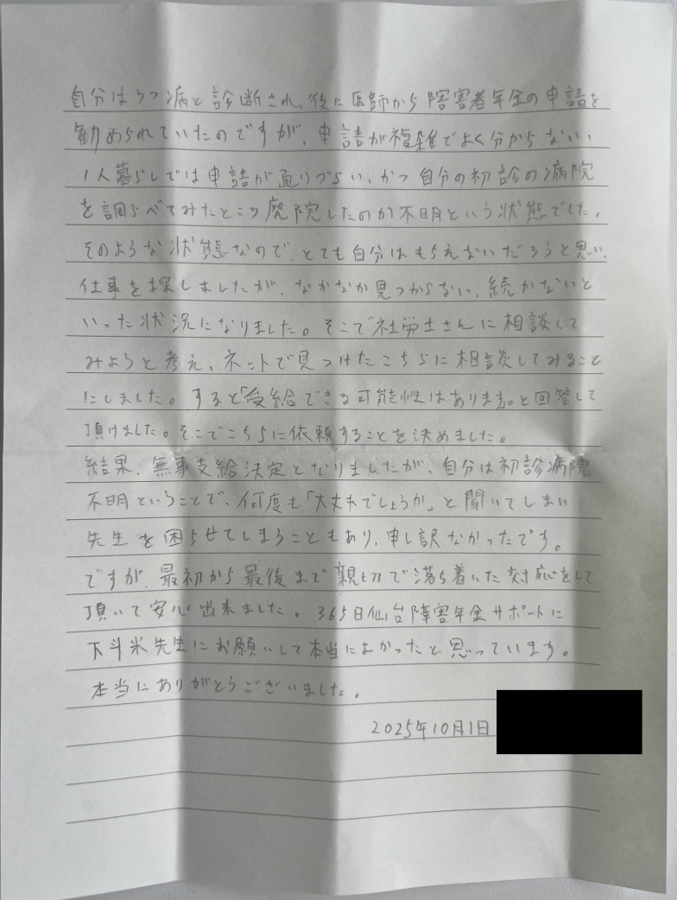 自分はうつ病と診断され、後に医師から障害者年金の申請を
勧められていたのですが、申請が複雑でよく分からない、
1人暮らしでは申請が通りづらい、かつ自分の初診の病院
を調べてみたところ廃院したのか不明という状態でした。
そのような状態なので、とても自分はもらえないだろうと思い、
仕事を探しましたが、なかなか見つからない、続かないと
いった状況になりました。そこで社労士さんに相談して
みようと考え、ネットで見つけたこちらに相談してみること
にしました。すると「受給できる可能性はあります。」と回答して
頂けました。そこでこちらに依頼することを決めました。
結果、無事支給決定となりましたが、自分は初診病院
不明ということで、何度も「大丈夫でしょうか」と聞いてしまい
先生を困らせてしまうこともあり、申し訳なかったです。
ですが、最初から最後まで親切で落ち着いた対応をして
頂いて安心出来ました。365日仙台障害年金サポートに
下斗米先生にお願いして本当によかったと思っています。
本当にありがとうございました。
2025年10月1日